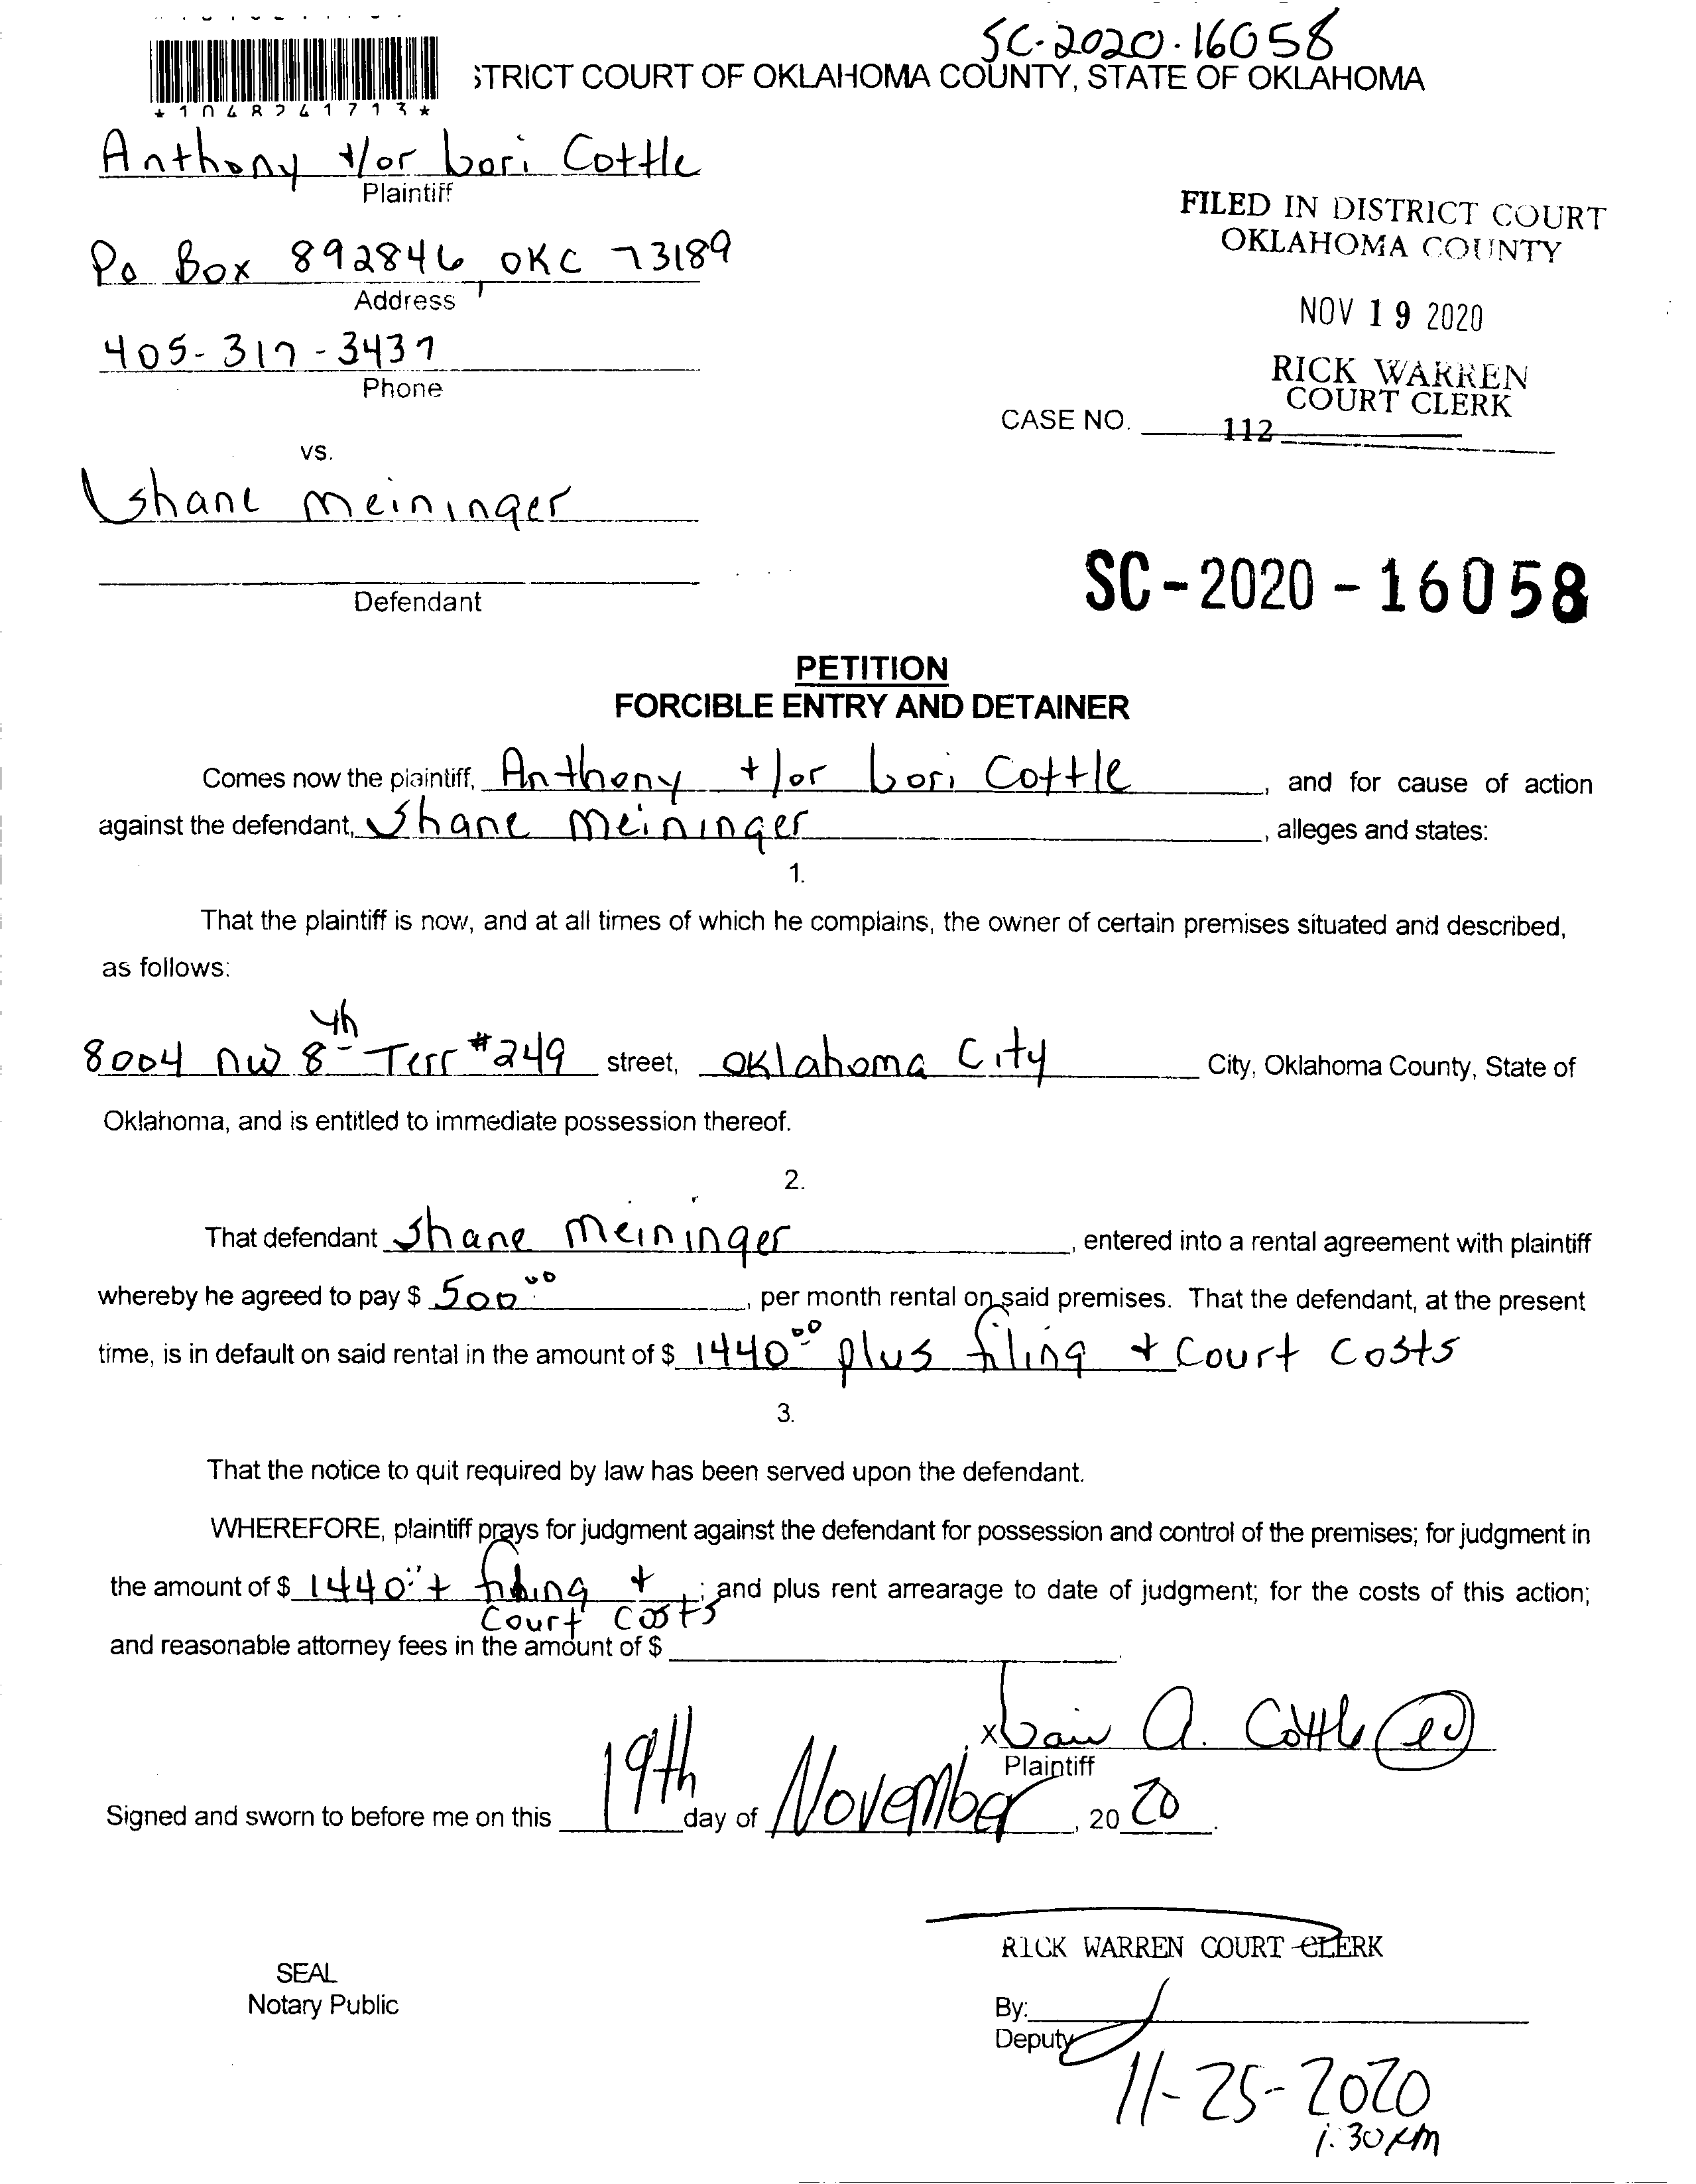 SC-2020-16058
STRICT COURT OF OKLAHOMA COUNTY, STATE OF OKLAHOMA
*1048241713*
Anthony +/or Lori Cottle
Plaintiff
FILED IN DISTRICT COURT
OKLAHOMA COUNTY
Po Box 892846, OKC 73189
Address
NOV 19 2020
405-317-3437
Phone
RICK WARREN
COURT CLERK
CASE NO. 112
vs.
Shane Meininger
Defendant
SC-2020-16058
PETITION
FORCIBLE ENTRY AND DETAINER
Comes now the plaintiff, Anthony +/or Lori Cottle, and for cause of action
against the defendant, Shane Meininger, alleges and states:
1.
That the plaintiff is now, and at all times of which he complains, the owner of certain premises situated and described,
as follows:
8004 NW 8th Terr #249 street, Oklahoma City City, Oklahoma County, State of
Oklahoma, and is entitled to immediate possession thereof.
2.
That defendant Shane Meininger, entered into a rental agreement with plaintiff
whereby he agreed to pay $ 500.00, per month rental on said premises. That the defendant, at the present
time, is in default on said rental in the amount of $ 1440.00 plus filing + Court Costs
3.
That the notice to quit required by law has been served upon the defendant.
WHEREFORE, plaintiff prays for judgment against the defendant for possession and control of the premises; for judgment in
the amount of $ 1440.00 + filing + Court Costs; and plus rent arrearage to date of judgment; for the costs of this action;
and reasonable attorney fees in the amount of $ .
x Lori A. Cottle
Plaintiff
Signed and sworn to before me on this 19th day of November, 20 20.
RICK WARREN COURT CLERK
SEAL
Notary Public
By:
Deputy
11-25-2020
1:30 pm